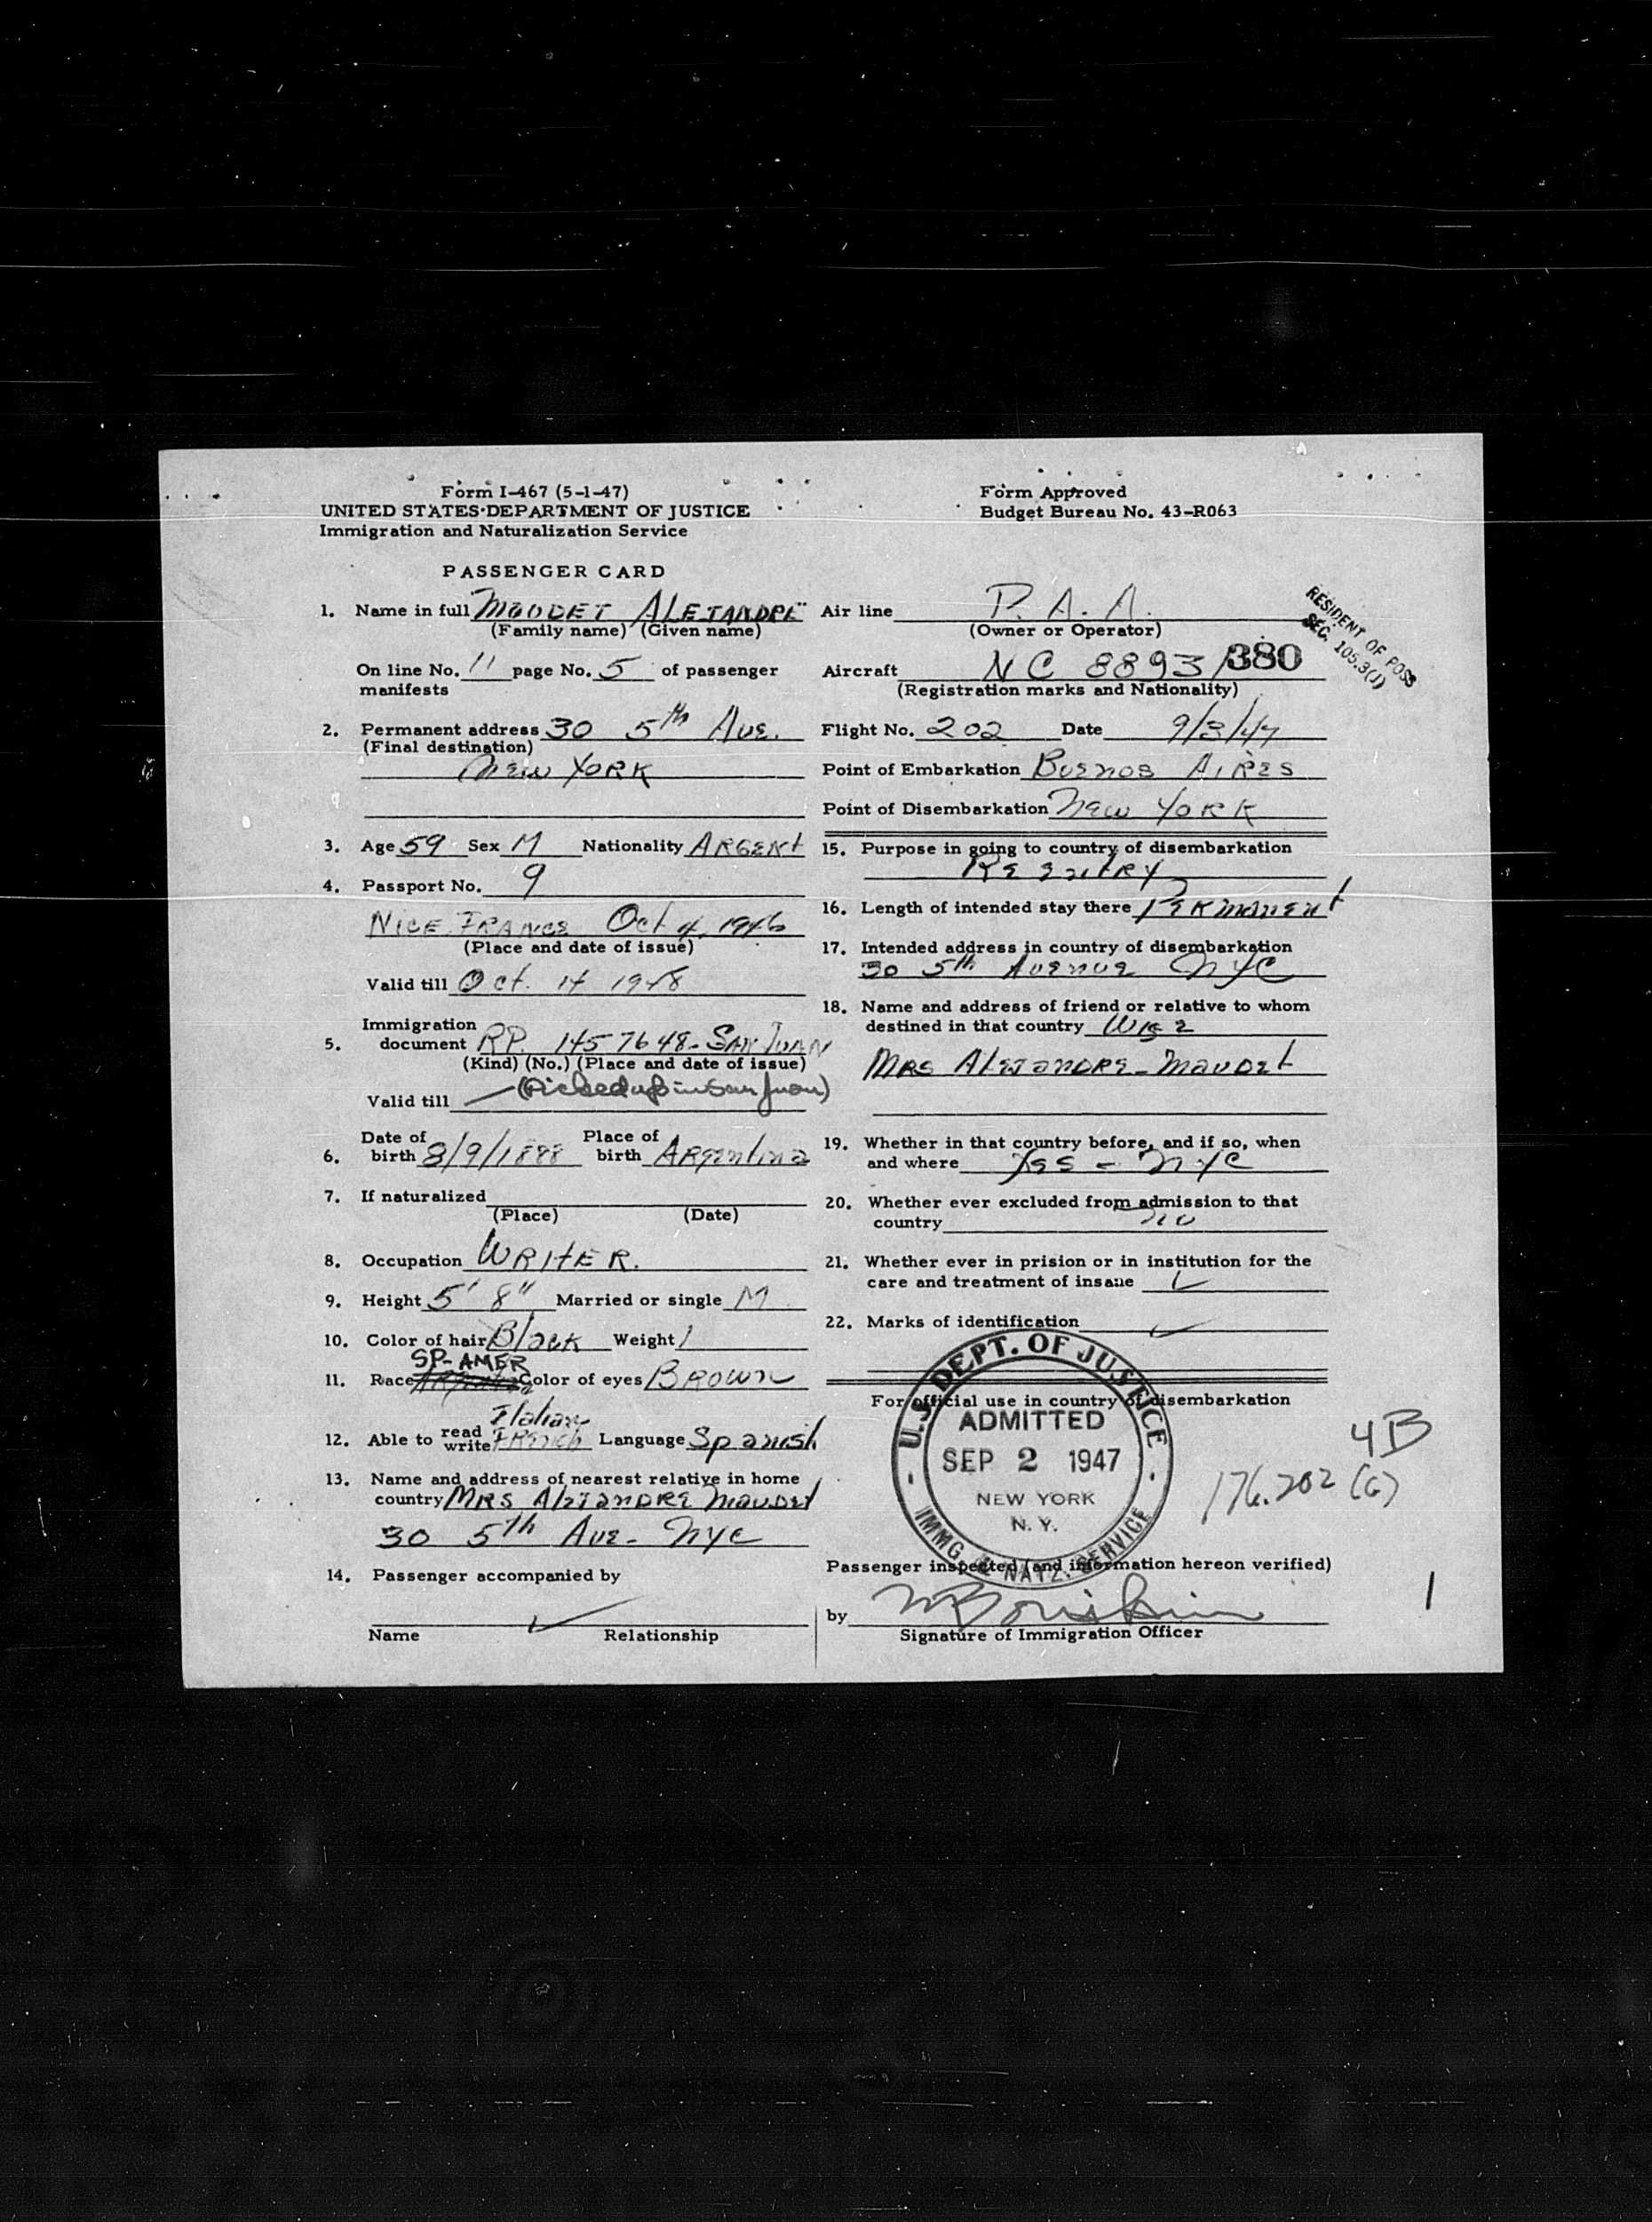 Form I-467 (5-1-47)
UNITED STATES DEPARTMENT OF JUSTICE
Immigration and Naturalization Service
Form Approved
Budget Bureau No. 43-R063
PASSENGER CARD
1. Name in full MAUDET ALEJANDRE
(Family name) (Given name)
On line No. 11 page No. 5 of passenger
manifests
2. Permanent address 30 5th Ave.
(Final destination)
New York
3. Age 59 Sex M Nationality ARGENT
4. Passport No. 9
NICE, FRANCE Oct 4, 1946
(Place and date of issue)
Valid till Oct. 14 1948
Immigration
5. document RP. 1457648- SAN JUAN
(Kind) (No.) (Place and date of issue)
(Picked up in San Juan)
Valid till
Date of Place of
6. birth 8/9/1888 birth Argentina
7. If naturalized
(Place) (Date)
8. Occupation WRITER.
9. Height 5' 8" Married or single M
10. Color of hair Black Weight
SP-AMER
11. Race Color of eyes BROWN
Italian
12. Able to read write French Language Spanish
13. Name and address of nearest relative in home
country MRS ALEJANDRE MAUDET
30 5th Ave- NYC
14. Passenger accompanied by
Name Relationship
Air line P.A.A.
(Owner or Operator)
Aircraft NC 8893/ 380
(Registration marks and Nationality)
RESIDENT OF POSS
SEC. 105.3(J)
Flight No. 202 Date 9/3/47
Point of Embarkation BUENOS AIRES
Point of Disembarkation New YORK
15. Purpose in going to country of disembarkation
REENTRY
16. Length of intended stay there PERMANENT
17. Intended address in country of disembarkation
30 5th Avenue NYC
18. Name and address of friend or relative to whom
destined in that country Wife
MRS ALEJANDRE- MAUDET
19. Whether in that country before, and if so, when
and where Yes - NYC
20. Whether ever excluded from admission to that
country no
21. Whether ever in prision or in institution for the
care and treatment of insane
22. Marks of identification
For official use in country of disembarkation
U.S. DEPT. OF JUSTICE
ADMITTED
SEP 2 1947
NEW YORK
N. Y.
IMMG. & NATZ. SERVICE
4B
176.202 (G)
Passenger inspected (and information hereon verified)
by
Signature of Immigration Officer
1